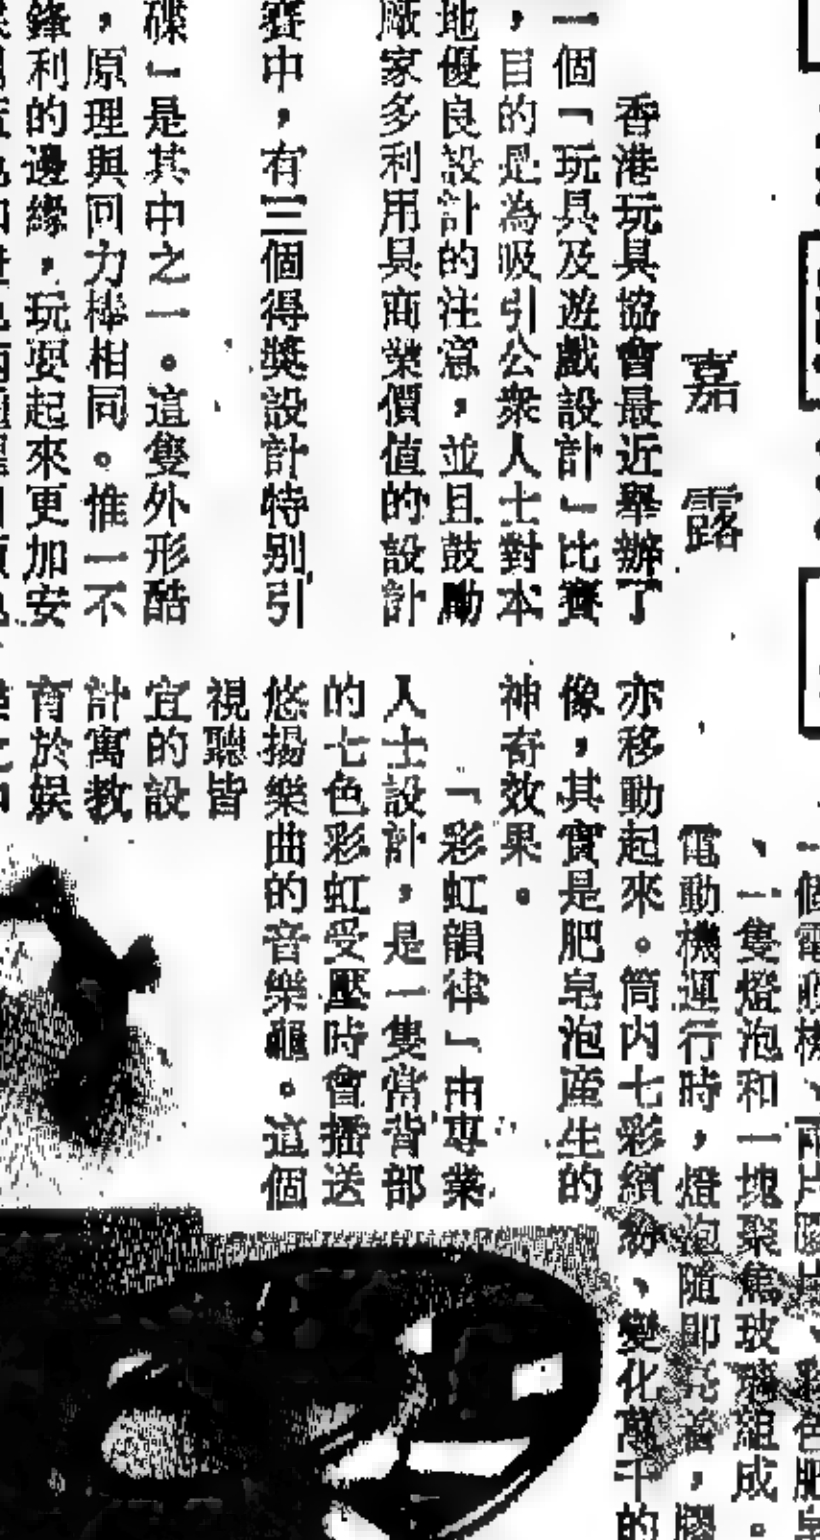 嘉露
香港玩具協會最近舉辦了
一個「玩具及遊戲設計」比賽
，目的是為吸引公衆人士對本
地優良設計的注意，並且鼓勵
廠家多利用具商業價值的設計
賽中，有三個得獎設計特別引
碟」是其中之一。這隻外形酷
，原理與回力棒相同。惟一不
鋒利的邊緣，玩耍起來更加安
、一隻燈泡和一塊聚焦玻璃組成。
電動機運行時，燈泡隨即亮着，膠
亦移動起來。筒内七彩繽紛、變化萬千的
像，其實是肥皂泡產生的
神奇效果。
「彩虹韻律」由專業
人士設計，是一隻當背部
的七色彩虹受壓時會播送
悠揚樂曲的音樂龜。這個
視聽皆
宜的設
計寓教
育於娛